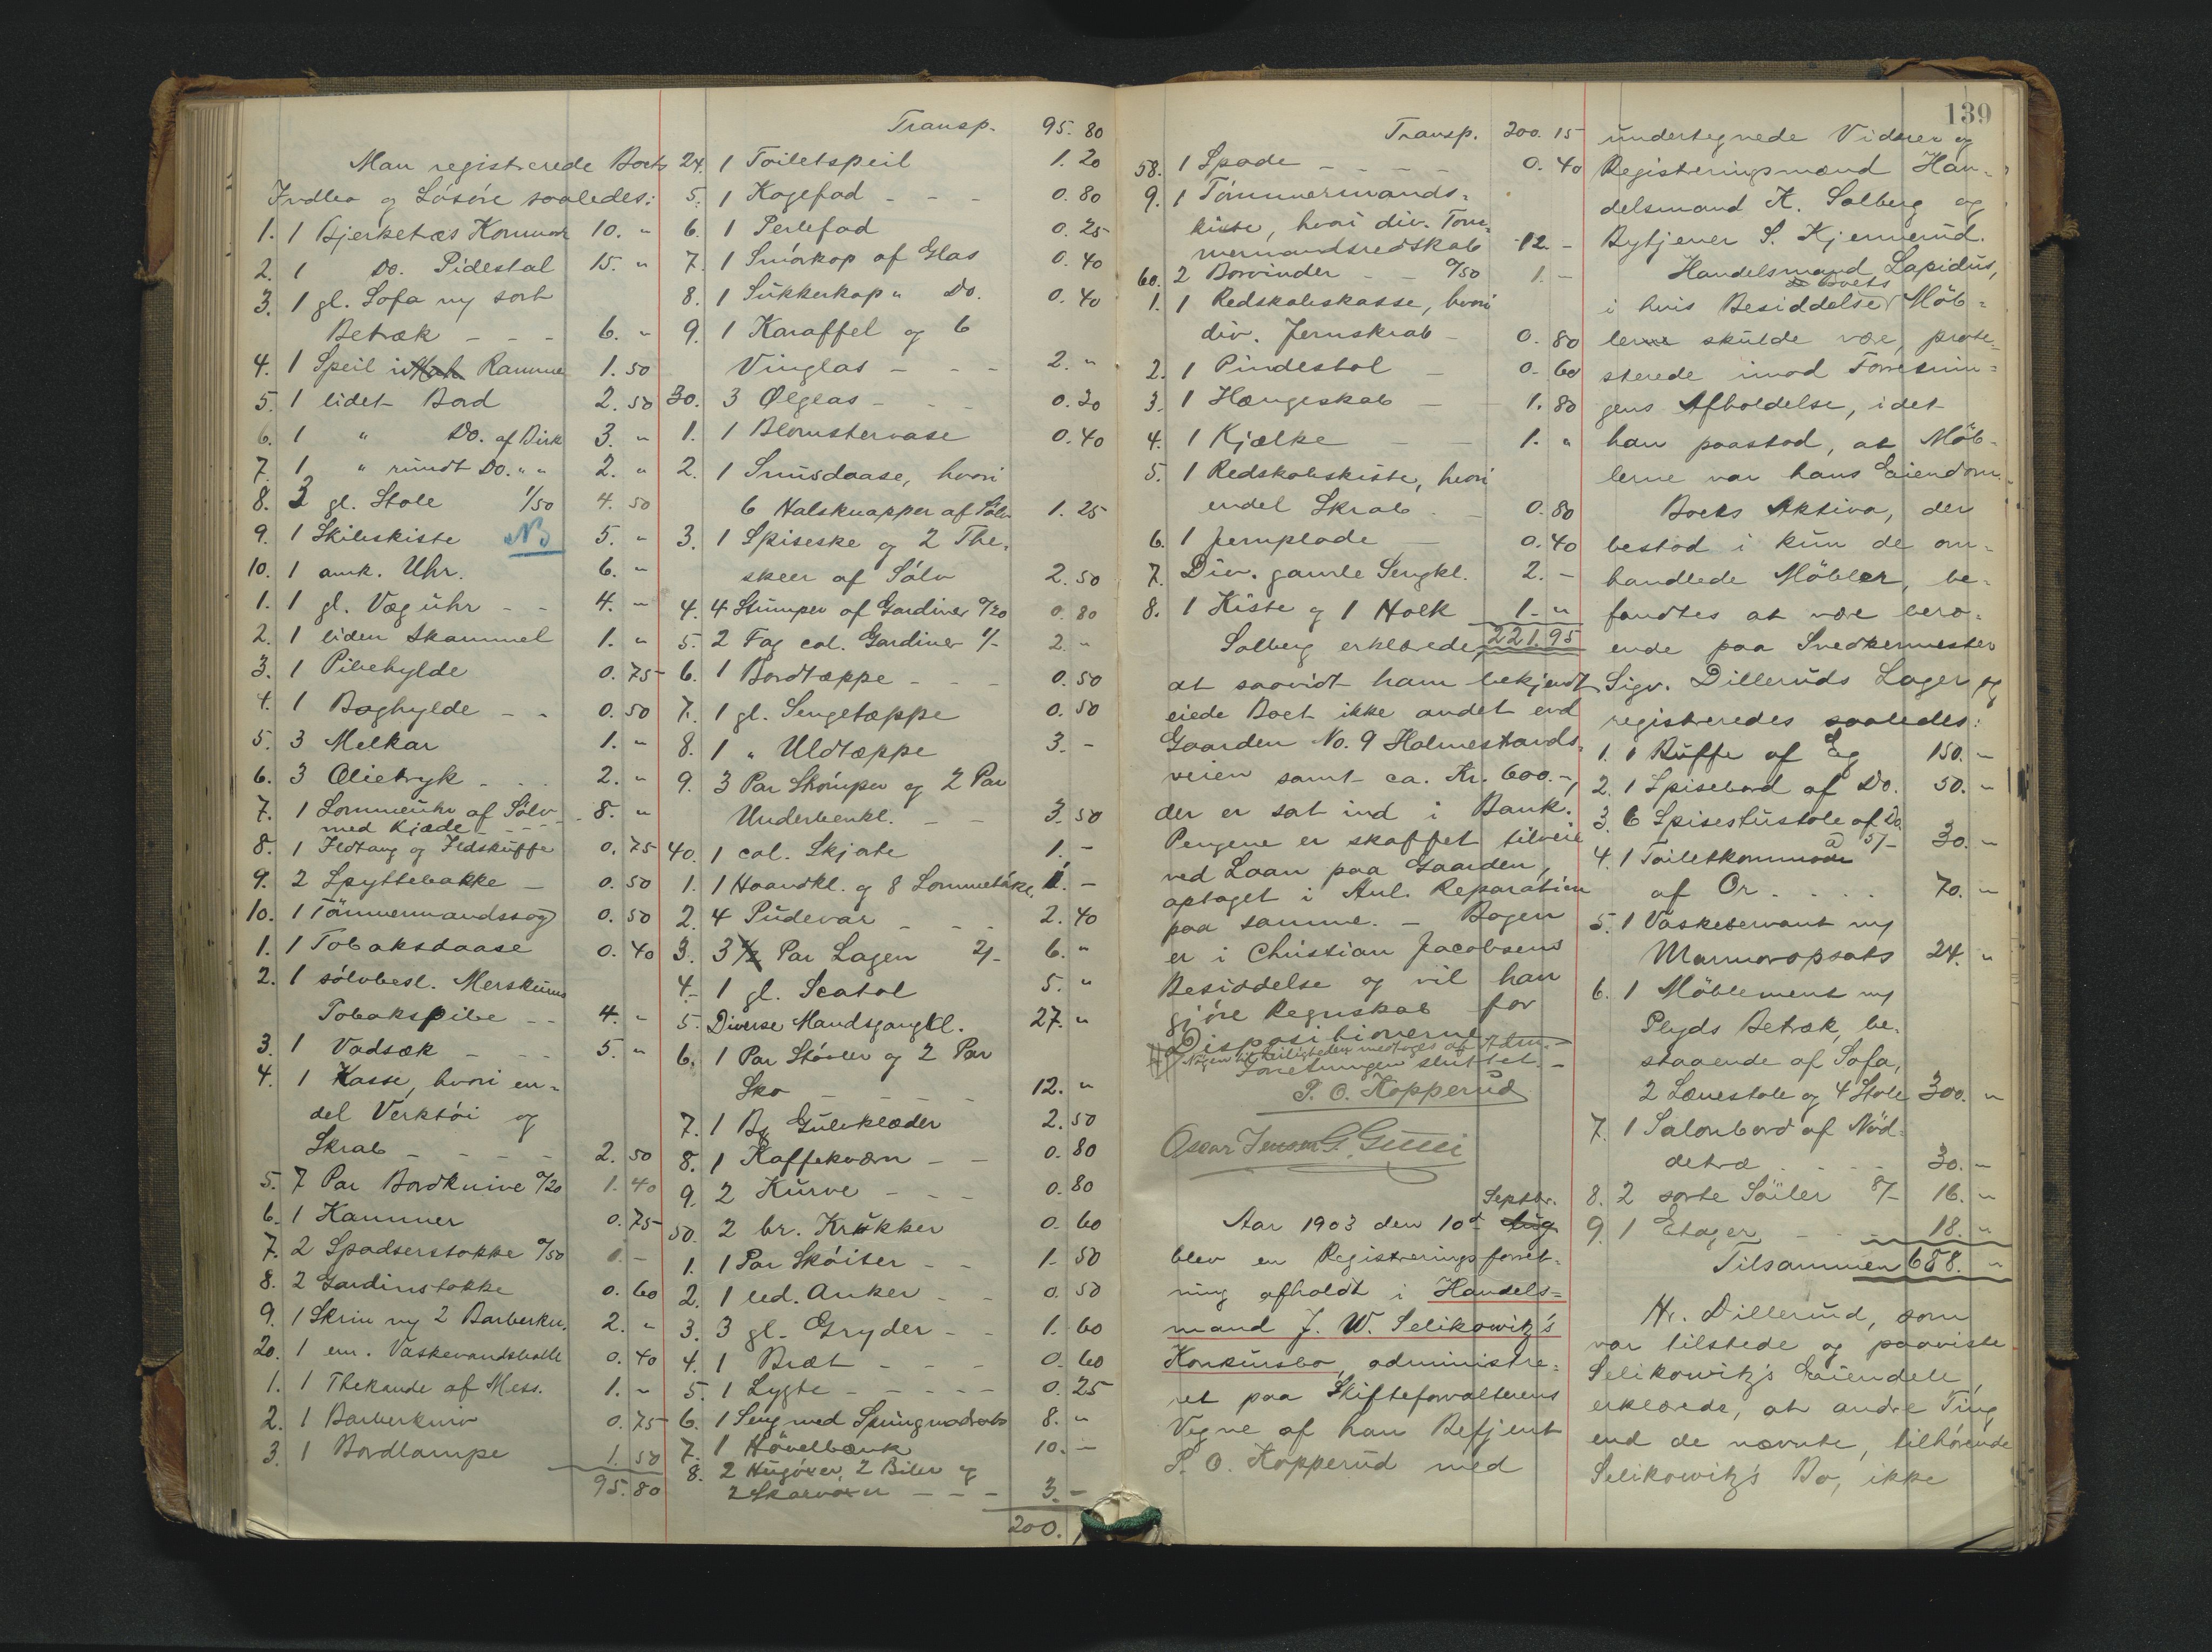 Man registrerede Boets
Indbo og Løsøre saaledes:
1. 1 Bjerketræs Kommode 10. "
2. 1 Do. Pidestal 15. "
3. 1 gl. Sofa m/ sort
Betræk - - - 6. "
4. 1 Speil i Ramme 1. 50
5. 1 lidet Bord 2. 50
6. 1 " Do. af Birk 3. "
7. 1 " rundt Do. " " 2. "
8. 3 gl. Stole 1/50 4. 50
9. 1 Skibskiste NB 5. "
10. 1 amk. Uhr. 6. "
1. 1 gl. Væguhr - - 4. "
2. 1 liden Skammel 1. "
3. 1 Pibehylde 0. 75
4. 1 Boghylde - - 0. 50
5. 3 Melkar 1. "
6. 3 Olietryk - - - 2. "
7. 1 Lommeuhr af Sølv - 8. "
med Kjæde - - -
8. 1 Ildtang og Ildskuffe 0. 75
9. 2 Spyttebakke - 0. 50
10. 1 Tømmermandssag 0. 50
1. 1 Tobaksdaase 0. 40
2. 1 sølvbesl. Merskums
Tobakspibe - - 4. "
3. 1 Vadsæk - - - 5. "
4. 1 Kasse, hvori en-
del Verktøi og
Skrab - - - - 2. 50
5. 7 Par Bordknive a/20 1. 40
6. 1 Hammer 0. 75
7. 2 Spadserstokke a/50 1. -
8. 2 Gardinstokke 0. 60
9. 1 Skrin m/ 2 Barberkn. 2. "
20. 1 em. Vaskevandsbolle 0. 40
1. 1 Thekande af Mess. 1. "
2. 1 Barberkniv 0. 75
3. 1 Bordlampe 1. 50
95. 80
Transp. 95. 80
24. 1 Toiletspeil 1. 20
5. 1 Kagefad - - - 0. 80
6. 1 Perlefad 0. 25
7. 1 Smørkop af Glas 0. 40
8. 1 Sukkerkop " Do. 0. 40
9. 1 Karaffel og 6
Vinglas - - - 2. "
30. 3 Ølglas - - - 0. 30
1. 1 Blomstervase 0. 40
2. 1 Snusdaase, hvori
6 Halsknapper af Sølv 1. 25
3. 1 Spiseske og 2 The-
skeer af Sølv 2. 50
4. 4 Stumper af Gardiner a/20 0. 80
5. 2 Fag col. Gardiner 1/- 2. "
6. 1 Bordtæppe - - - 0. 50
7. 1 gl. Sengetæppe 0. 50
8. 1 " Uldtæppe 3. -
9. 3 Par Strømper og 2 Par
Underbenkl. - - 3. 50
40. 1 col. Skjorte 1. -
1. 1 Haandkl. og 8 Lommetøkl. 1. -
2. 4 Pudevar - - - 2. 40
3. 3 Par Lagen 2/- 6. "
4. 1 gl. Scatol 5. "
5. Diverse Mandsgangkl. 27. "
6. 1 Par Støvler og 2 Par
Sko - - - - 12. "
7. 1 Bg Gulvklæder 2. 50
8. 1 Kaffekværn - - 0. 80
9. 2 Kurve - - - 0. 80
50. 2 br. Krukker 0. 60
1. 1 Par Skøiter - - 1. 50
2. 1 lid. Anker - - 0. 50
3. 3 gl. Gryder - - 1. 60
4. 1 Bræt - - - 0. 60
5. 1 Lygte - - - - - 0. 25
6. 1 Seng med Springmadrats 8. "
7. 1 Høvelbænk 10. -
8. 2 Hugøxer, 2 Biler og
2 Skarvøxer - - - 3. -
200.
139
Transp. 200. 15
58. 1 Spade - - - - 0. 40
9. 1 Tømmermands-
kiste, hvori div. Tøm-
mermandsredskab 12. -
60. 2 Borvinder - - a/50 1. -
1. 1 Redskabskasse, hvori
div. Jernskrab - 0. 80
2. 1 Pindestol - 0. 60
3. 1 Hængeskab - - 1. 80
4. 1 Kjælke - - 1. "
5. 1 Redskabskiste, hvori
endel Skrab - - 0. 80
6. 1 Jernplade - 0. 40
7. Div. gamle Sengkl. 2. -
8. 1 Kiste og 1 Holk 1. "
Solberg erklærede, 221.95
at saavidt ham bekjendt
eiede Boet ikke andet end
Gaarden No. 9 Holmestrands-
veien samt ca. Kr. 600.-,
der er sat ind i Bank.
Pengene er skaffet tilveie
ved Laan paa Gaarden,
optaget i Anl. Reparation
paa samme. - Bogen
er i Christian Jacobsens
Besiddelse og vil han
gjøre Regnskab for
Dispositionerne.
Forretningen sluttet. -
P. O. Kopperud
Oscar Jensen G. Gucci
Septbr.
Aar 1903 den 10de Aug
blev en Registreringsforret-
ning afholdt i Handels-
mand J. W. Selikowitz's
Konkursbo, administre-
ret paa Skifteforvalterens
Vegne af hans Betjent
P. O. Kopperud med
undertegnede Vidner og
Registreringsmænd Han-
delsmand K. Solberg og
Bytjener S. Kjennerud.
Handelsmand Lapidus,
Boets
i hvis Besiddelse Møb-
lerne skulde være, prote-
sterede imod Forretnin-
gens Afholdelse, idet
han paastod, at Møb-
lerne var hans Eiendom.
Boets Aktiva, der
bestod i kun de om-
handlede Møbler, be-
fandtes at være bero-
ende paa Snedkermester
Sigv. Dilleruds Lager og
registreredes saaledes:
1. 1 Buffe af Eg 150. -
2. 1 Spisebord af Do. 50. "
3. 6 Spisestustole af Do.
a 5/- 30. "
4. 1 Toiletkommode
af Or . . . . 70. "
5. 1 Vaskeservant m/
Marmoropsats 24. "
6. 1 Møblement m/
Plyds Betræk, be-
staaende af Sofa,
2 Lænestole og 4 Stole 300. "
7. 1 Salonbord af Nød-
detræ - - - - 30. -
8. 2 sorte Søiler 8/- 16. "
9. 1 Etager - - - 18. "
Tilsammen 688. "
Hr. Dillerud, som
var tilstede og paaviste
Selikowitz's Eiendele,
erklærede, at andre Ting
end de nævnte, tilhørende
Selikowitz's Bo, ikke